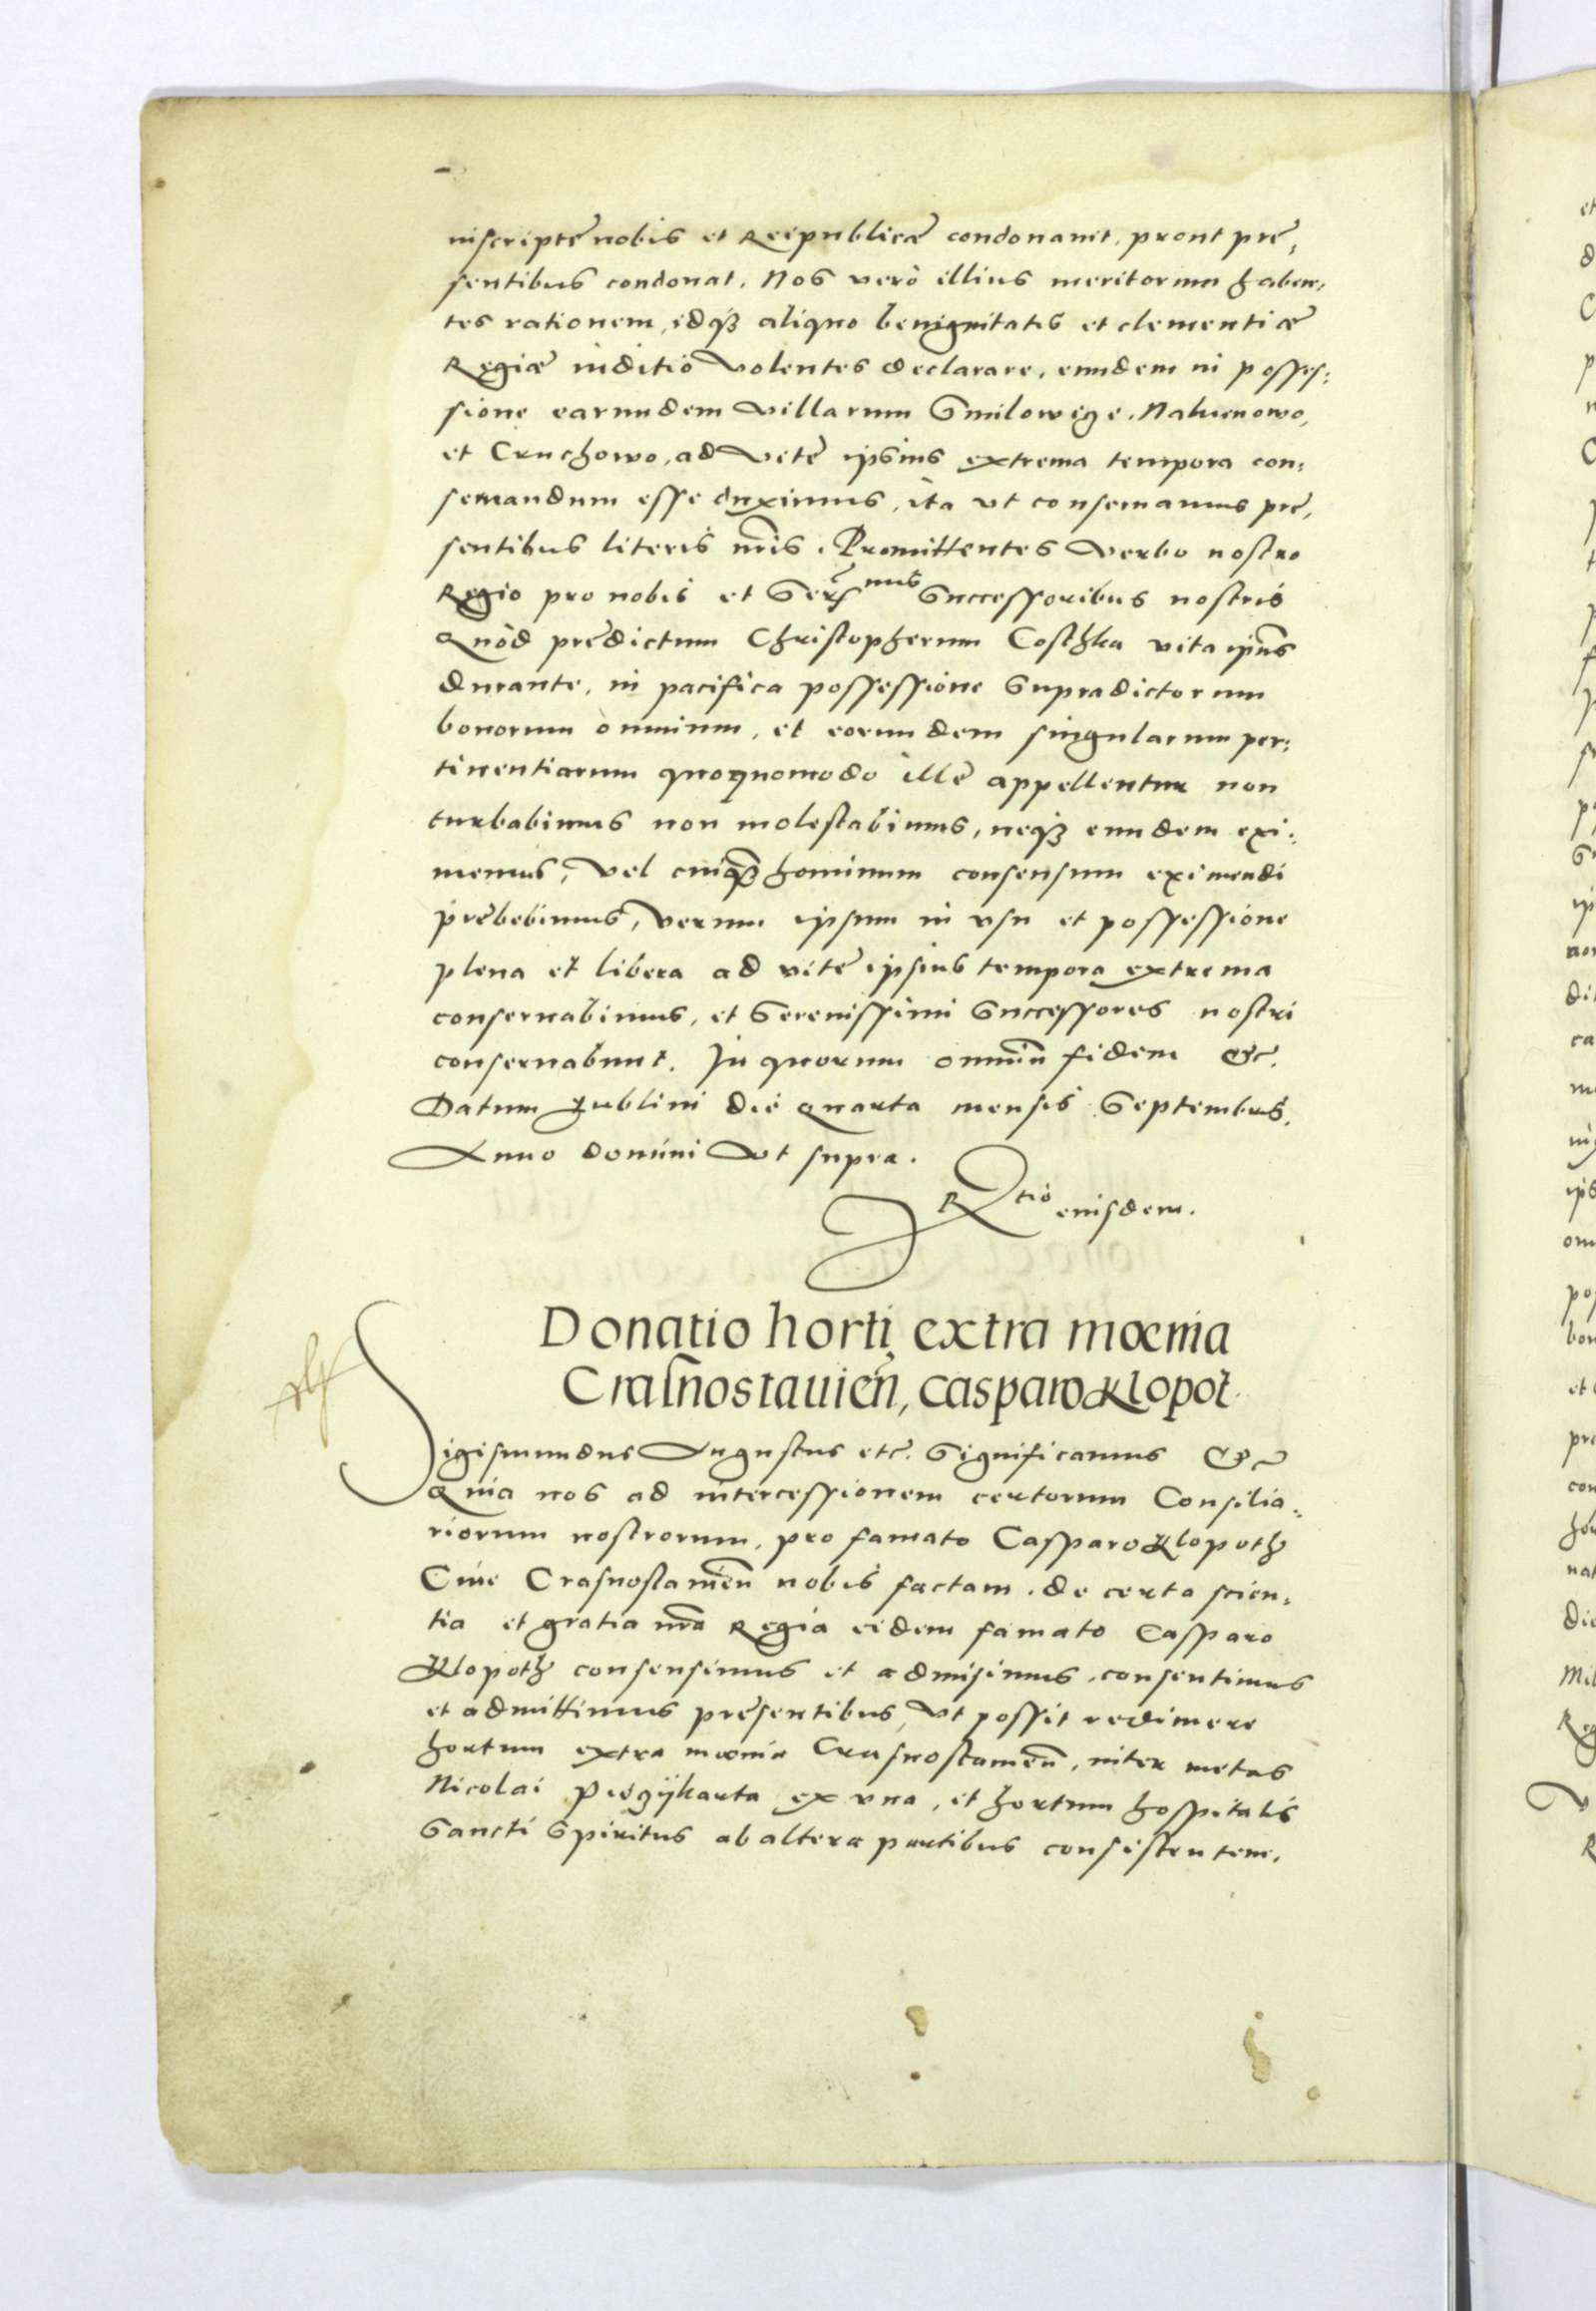 inscriptę nobis et Reipublicæ condonauit, prout prę,
sentibus condonat. Nos verò illius meritorum haben,
tes rationem, idq3 aliquo benignitatis et clementiæ
Regiæ inditio volentes declarare, eundem in posses:
sione earundem villarum Smilowige, Nakienowo,
et Cruchowo, ad vitę ipsius extrema tempora con:
seruandum esse duximus, ita vt conseruamus prę,
sentibus literis nr̃is. Promittentes verbo nostro
Regio pro nobis et Ser̃mis Successoribus nostris
Quòd prędictum Christopherum Costhka vita ipsius
durante, in pacifica possessione supradictorum
bonorum omnium, et eorundem singularum per:
tinentiarum quoquomodo illę appellentur non
turbabimus non molestabimus, neq3 eundem exi:
memus, vel cuiq̃3 hominum consensum eximendi
prębebimus, verum ipsum in vsu et possessione
plena et libera ad vitę ipsius tempora extrema
conseruabimus, et Serenissimi Successores nostri
conseruabunt. In quorum omniũ fidem &c.
Datum Lublini die quarta mensis Septembris.
Anno domini vt supra.
Rtio eiusdem.
Donatio horti extra mœnia
Crasnostauieñ, Casparo Klopot.
Sigismundus Augustus etc. Significamus &c
Quia nos ad intercessionem certorum Consilia:
riorum nostrorum, pro famato Casparo Klopoth
Ciue Crasnostauieñ nobis factam, de certa scien,
tia et gratia nr̃a Regia eidem famato Casparo
Klopoth consensimus et admisimus, consentimus
et admittimus pręsentibus, vt possit redimere
hortum extra mœnia Crasnostauieñ, inter metas
Nicolai Piegÿkarta ex vna, et hortum hospitalis
Sancti Spiritus ab altera partibus consistentem,